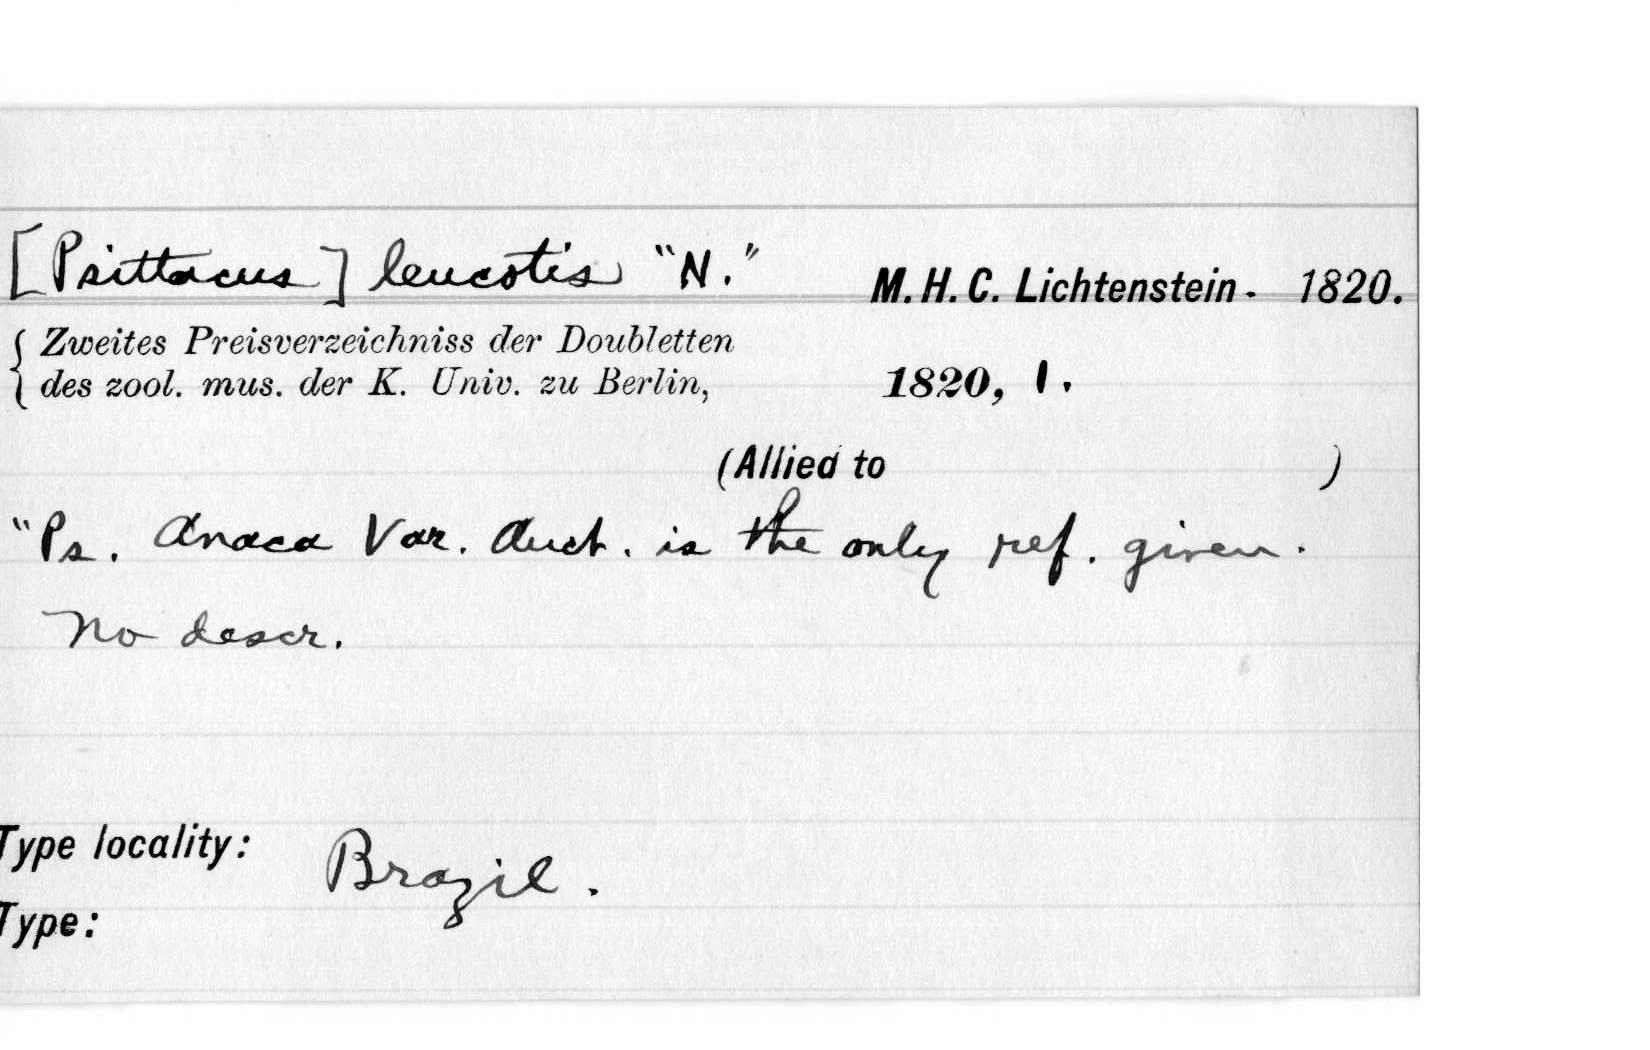 [Psittacus] leucotis "N." M. H. C. Lichtenstein. 1820.
Zweites Preisverzeichniss der Doubletten
des zool. mus. der K. Univ. zu Berlin, 1820, 1.
(Allied to )
"Ps. Anaca Var. Auct. is the only ref. given.
No descr.
Type locality: Brazil.
Type: